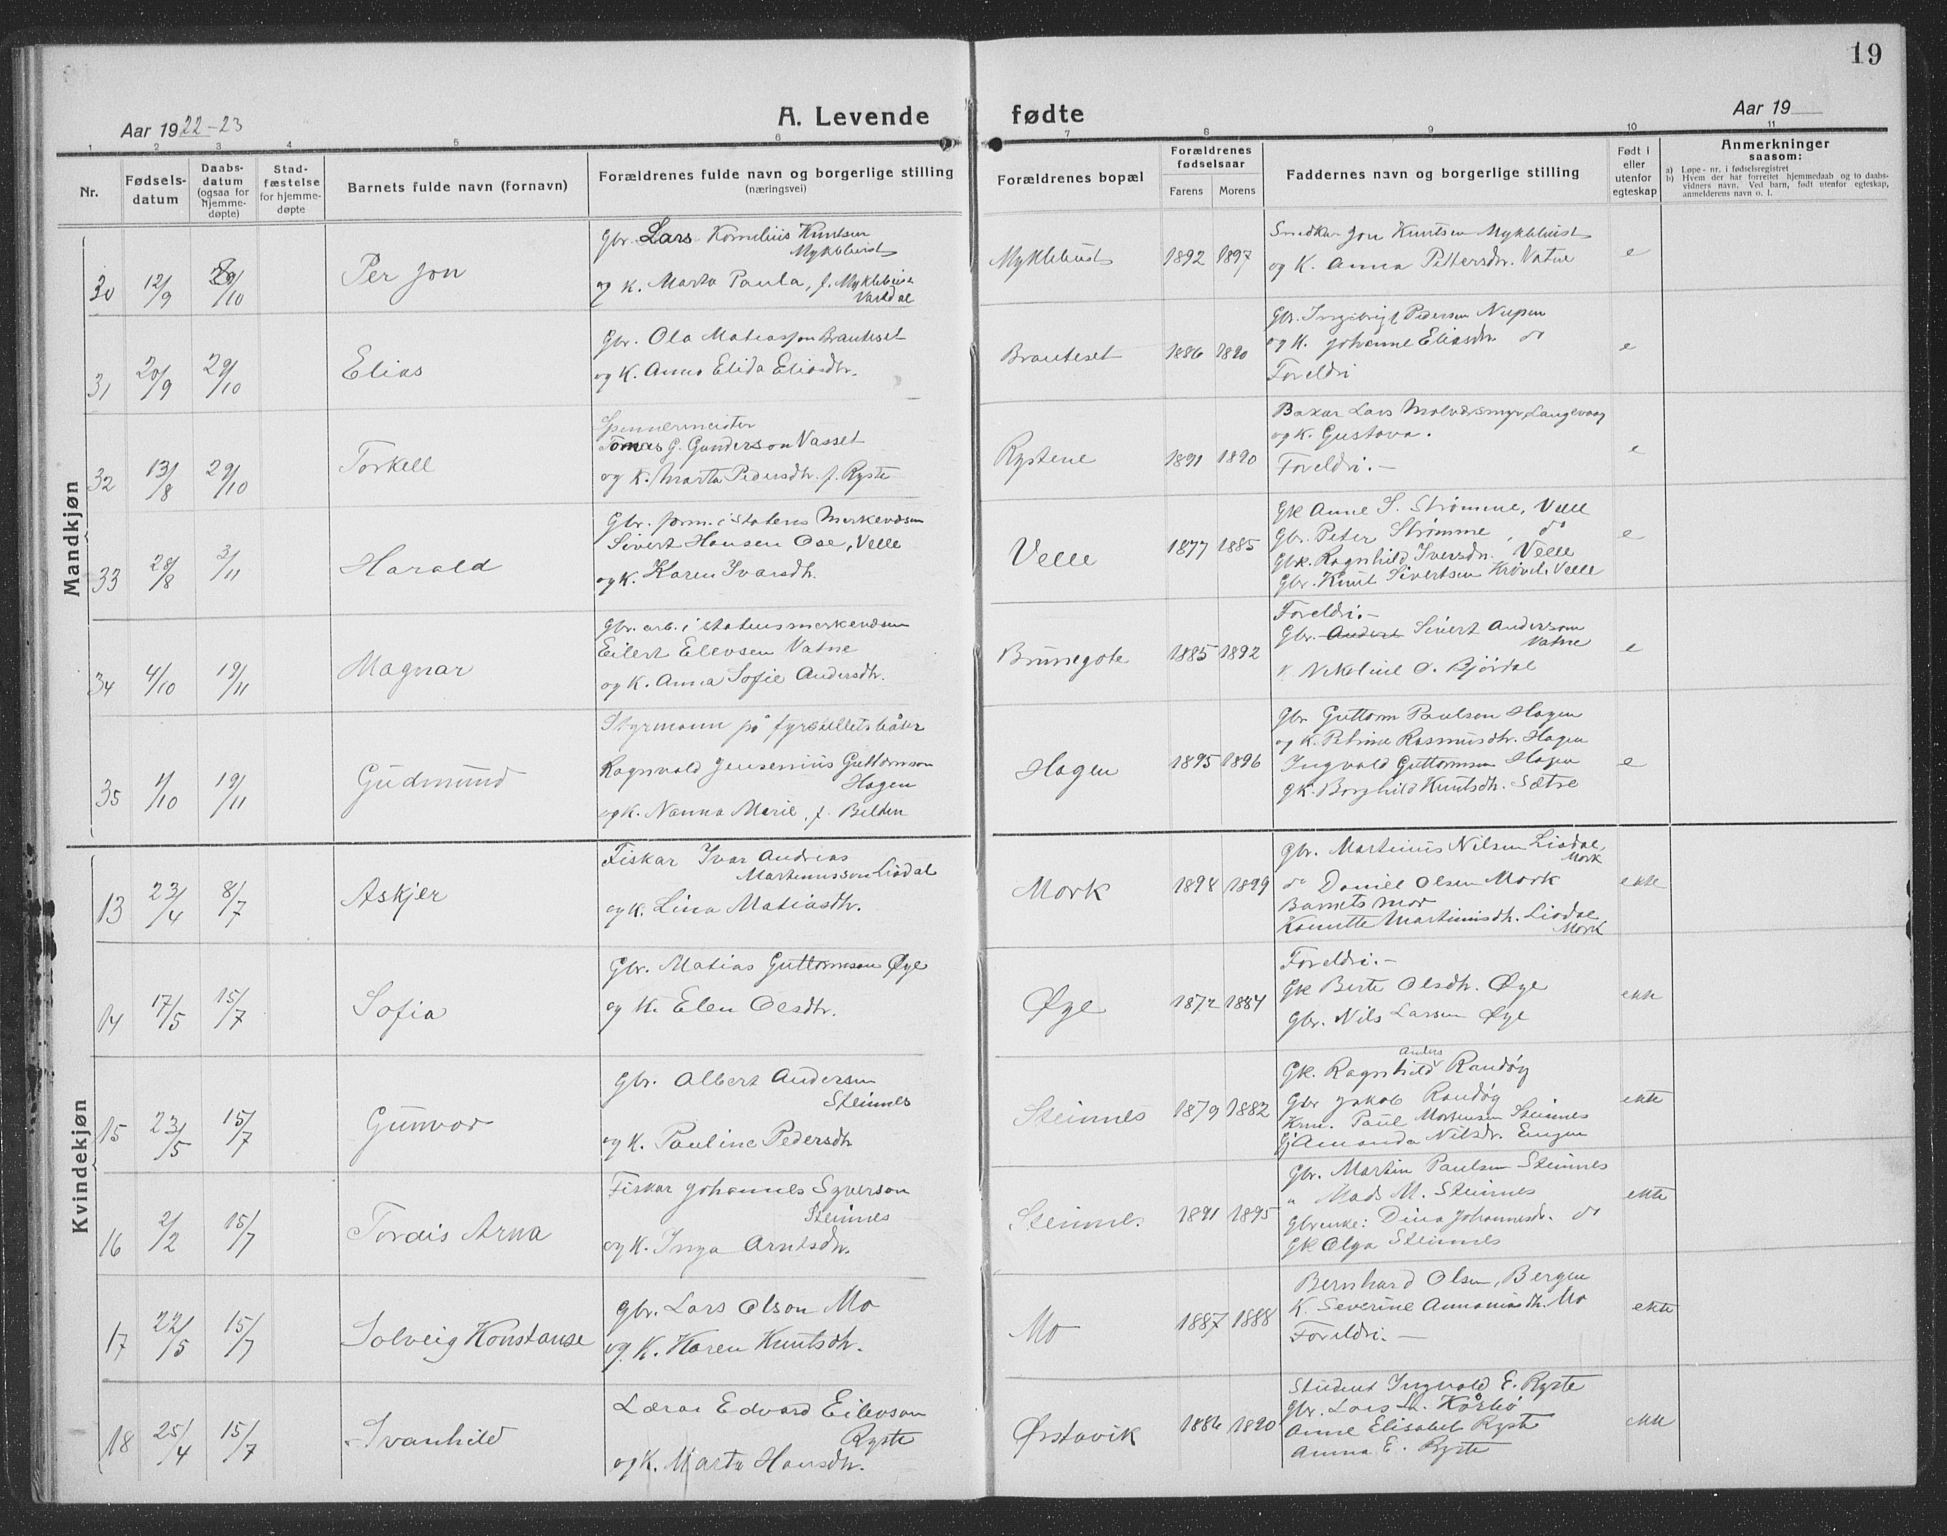 19
Aar 1922-23
A. Levende fødte
Aar 19
1 2 3 4 5 6 7 8 9 10 11
Nr.
Fødselsdatum
Daabsdatum (ogsaa for hjemmedøpte)
Stadfæstelse for hjemmedøpte
Barnets fulde navn (fornavn)
Forældrenes fulde navn og borgerlige stilling (næringsvei)
Forældrenes bopæl
Forældrenes fødselsaar
Farens Morens
Faddernes navn og borgerlige stilling
Født i eller utenfor egteskap
Anmerkninger saasom:
a) Løpe-nr. i fødselsregistret
b) Hvem der har forrettet hjemmedaab og to daabsvidners navn. Ved barn, født utenfor egteskap, anmelderens navn o. l.
Mandkjøn
30 12/9 /10 Per Jon
Gbr. Lars Kornelius Knutsen
Myklebust
og K. Marta Paula, f. Myklebust
Vartdal
Myklebust 1892 1897
Smedkar Jon Knutsen Myklebust
og K. Anna Pettersdtr. Vatne
e
31 20/9 29/10 Elias
Gbr. Ola Matiasson Brauteset
og K. Anna Elida Eliasdtr.
Brauteset 1886 1890
Gbr. Ingebrigt Pedersen Nupen
og K. Johanne Eliasdtr. do
Foreldri
e
32 13/8 29/10 Torkell
Spennermeister
Tomas G. Gunderson Vasset
og K. Marta Pedersdtr. f. Ryste
Rystene 1891 1890
Bakar Lars Molværsmyr, Langevaag
og K. Gustava.
Foreldri.-
e
33 28/8 3/11 Harald
Gbr. form. i statens Merkevæsen
Sivert Hansen Ose, Velle
og K. Karen Ivarsdtr.
Velle 1877 1885
Gk Anne S. Strømme, Velle
Gbr. Peter Strømme, do
Gbk. Ragnhild Iversdtr. Velle
Gbr. Knut Sivertsen Krøvel, Velle
e
34 4/10 19/11 Magnar
Gbr. arb. i statens merkevæsen
Eilert Elevsen Vatne
og K. Anna Sofie Andersdtr.
Brunegote 1885 1892
Foreldri.-
Gbr. Sivert Anderson
Vatne
K. Nikoline O. Bjørdal
e
35 1/10 19/11 Gudmund
Styrmann på fyrdilletsbåter
Ragnvald Jensenius Guttormson
Hagen
og K. Nanna Marie, f. Belden
Hagen 1895 1896
Gbr Guttorm Paulson Hagen
og K. Petrine Rasmusdtr. Hagen
Ingvald Guttormsen Hagen
gk. Borghild Knutsdtr. Sætre
e
Kvindekjøn
13 23/4 8/7 Askjer
Fiskar Ivar Andreas
Martinusson Liadal
og K. Lina Matiasdtr.
Mork 1898 1899
Gbr. Martinus Nilsen Liadal,
Mork
do Daniel Olsen Mork
Barnets mor
Kanutte Martinusdtr. Liadal,
Mork
ekte
14 17/5 15/7 Sofia
Gbr. Matias Guttormson Øye
og K. Elen Olsdtr.
Øye 1872 1884
Foreldri.-
Gk Berte Olsdtr. Øye
Gbr. Nils Larsen Øye
ekte
15 23/5 15/7 Gunvor
Gbr. Albert Andersen
Steinnes
og K. Pauline Pedersdtr
Steinnes 1879 1882
Anders
Gk. Ragnhild Randøy
Gbr Jakob Randøy
Krm. Paul Mortensen Steinnes
Gj Amanda Nilsdr. Engen
ekte
16 2/2 15/7 Tordis Arna
Fiskar Johannes Syverson
Steinnes
og K. Inga Arntsdtr.
Steinnes 1891 1895
Gbr. Martin Paulsen Steinnes
" Mads M. Steinnes
Gbrenke: Dina Johannesdr. do
Gk Olga Steinnes
ekte
17 22/5 15/7 Solveig Konstanse
Gbr. Lars Olson Mo
og K. Karen Knutsdtr.
Mo 1887 1888
Bernhard Olsen, Bergen
K. Severine Annaniasdtr. Mo
Foreldri.-
ekte
18 25/4 15/7 Svanhild
Lærar Edvard Eilevson
Ryste
og K. Marta Hansdtr.
Ørstavik 1886 1890
Student Ingvald E. Ryste
Gbr. Lars L. Kårbø
Anne Elisabet Ryste
Anna E. Ryste
ekte